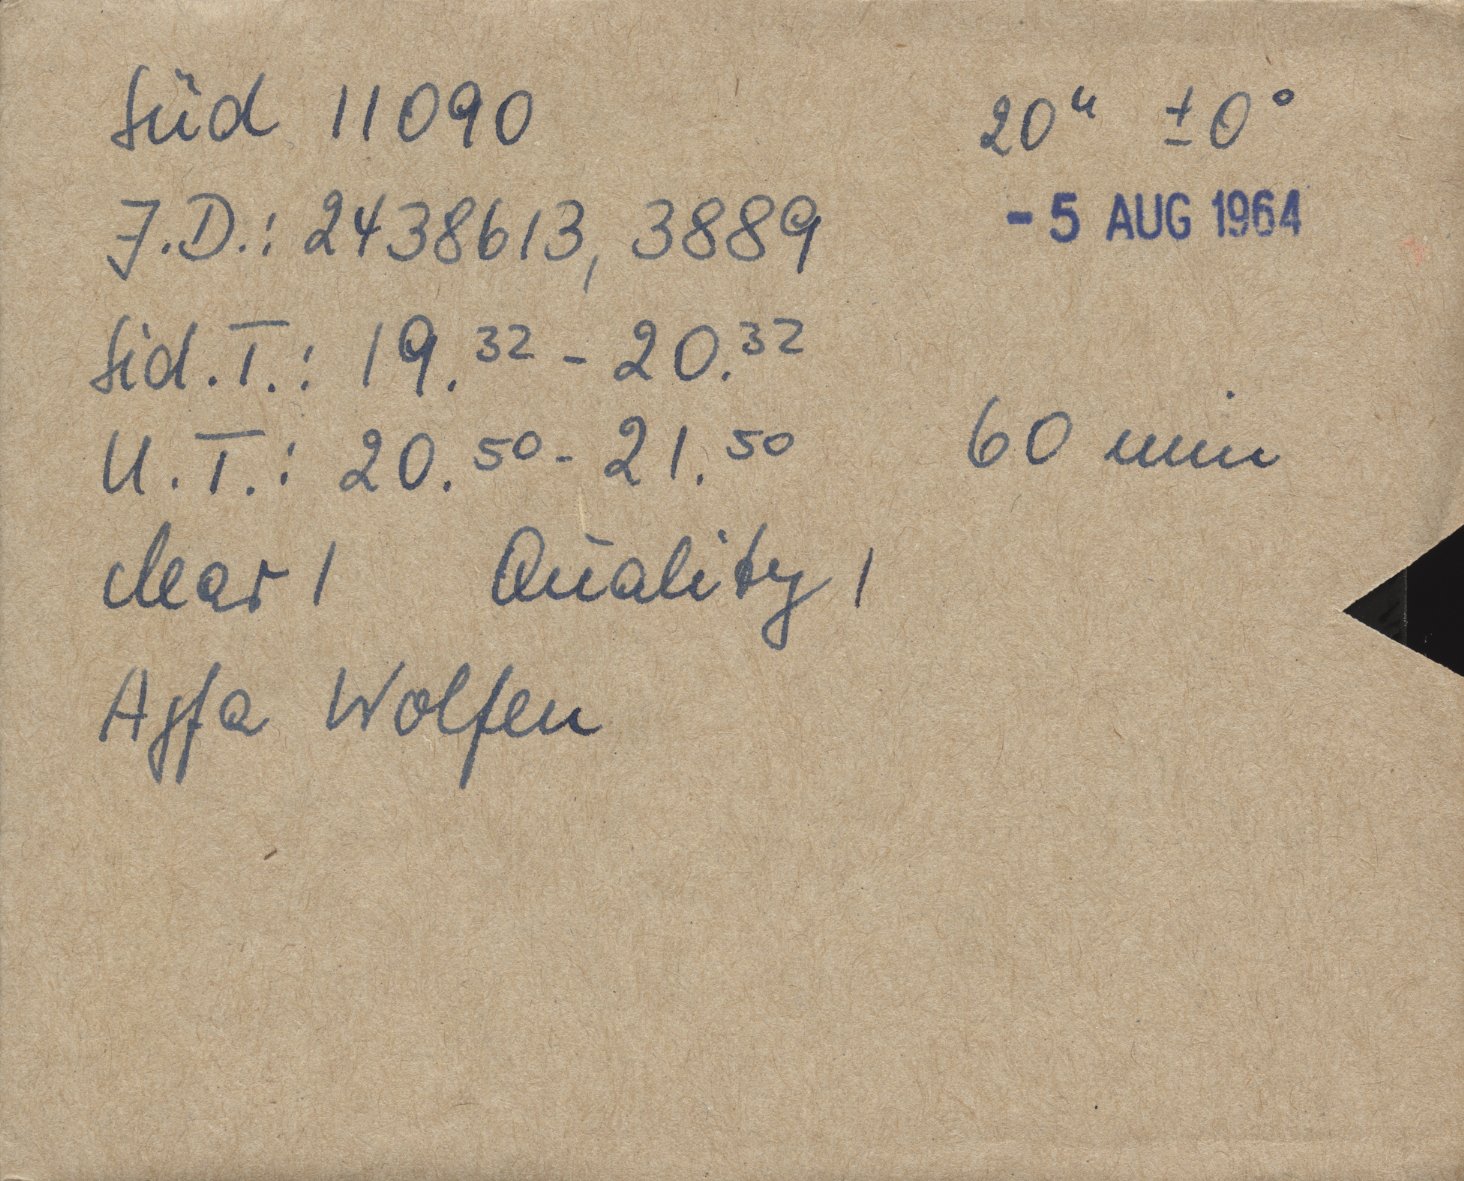 Süd 11090 20ʰ ±0°
J.D.: 2438613,3889 - 5 AUG 1964
Sid.T.: 19.32 - 20.32
U.T.: 20.50 - 21.50 60 min
clear 1 Quality 1
Agfa Wolfen